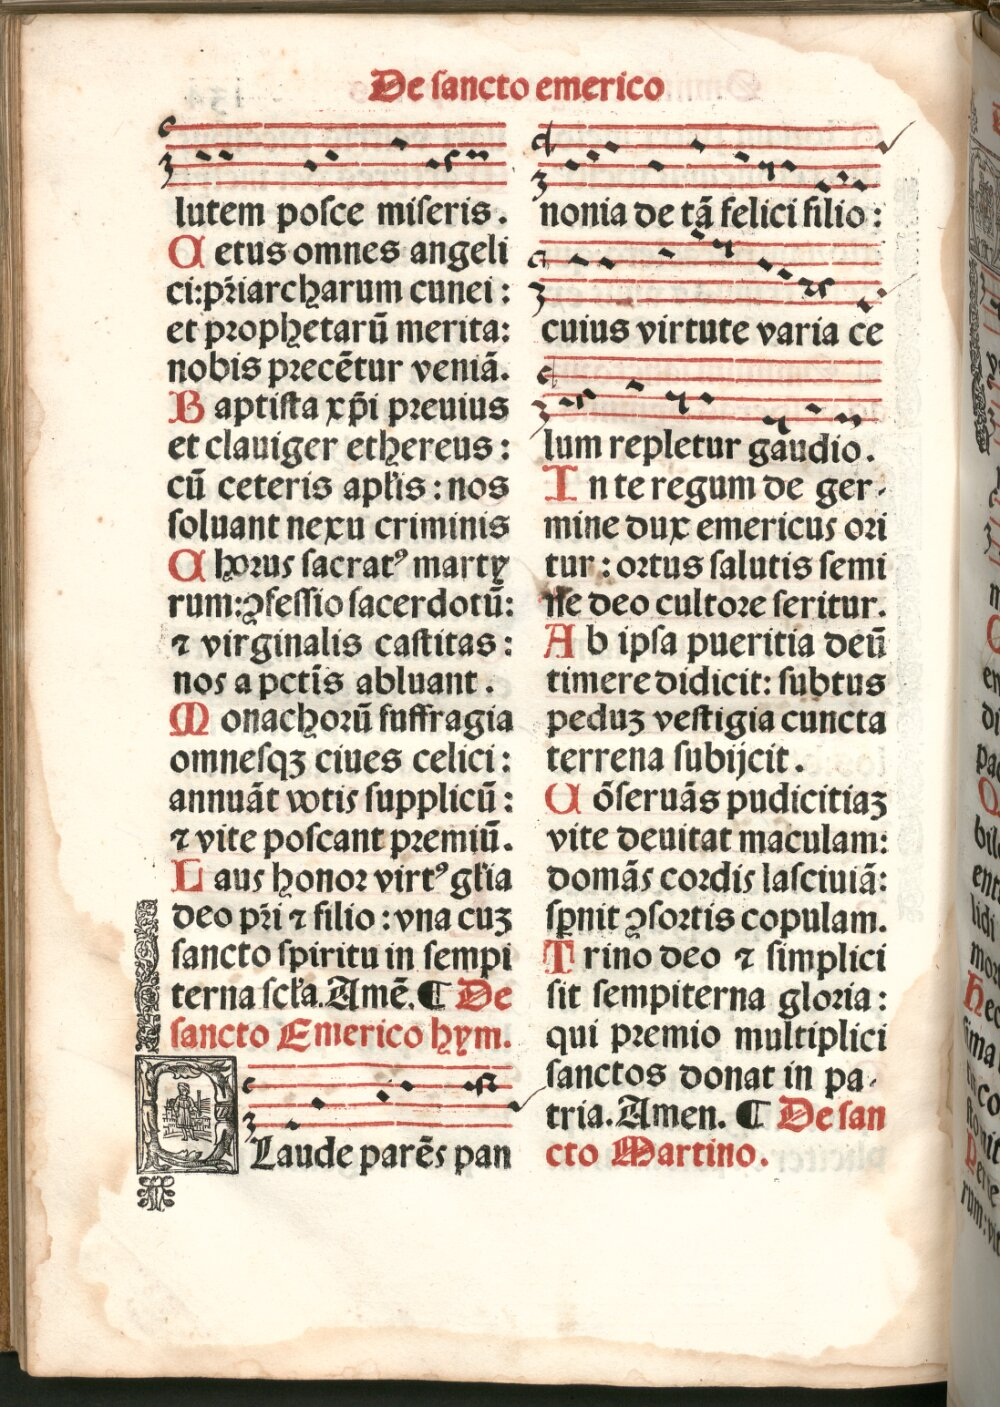 De sancto emerico
lutem poſce miſeris.
Cetus omnes angeli
ci:pr̄iarcharum cunei:
et prophetarū merita:
nobis precētur veniā.
Baptiſta xp̄i preuius
et clauiger ethereus:
cū ceteris apl̄is:nos
ſoluant nexu criminis
Chorus ſacratꝰ marty
rum:ꝯfeſſio ſacerdotū:
⁊ virginalis caſtitas:
nos a pct̄is abluant.
Monachorū ſuffragia
omneſqꝫ ciues celici:
annuāt votis ſupplicū:
⁊ vite poſcant premiū.
Laus honor virtꝰ gl̄ia
deo pr̄i ⁊ filio:vna cuꝫ
ſancto ſpiritu in ſempi
terna ſcl̄a.Amē.¶ De
ſancto Emerico hym.
Laude parēs pan
nonia de tā felici filio:
cuius virtute varia ce
lum repletur gaudio.
In te regum de ger-
mine dux emericus ori
tur:ortus ſalutis ſemi
ne deo cultore ſeritur.
Ab ipſa pueritia deū
timere didicit:ſubtus
peduꝫ veſtigia cuncta
terrena ſubijcit.
Cōſeruās pudicitiaꝫ
vite deuitat maculam:
domās cordis laſciuiā:
ſp̱nit ꝯſortis copulam.
Trino deo ⁊ ſimplici
ſit ſempiterna gloria:
qui premio multiplici
ſanctos donat in pa-
tria.Amen. ¶ De ſan
cto Martino.